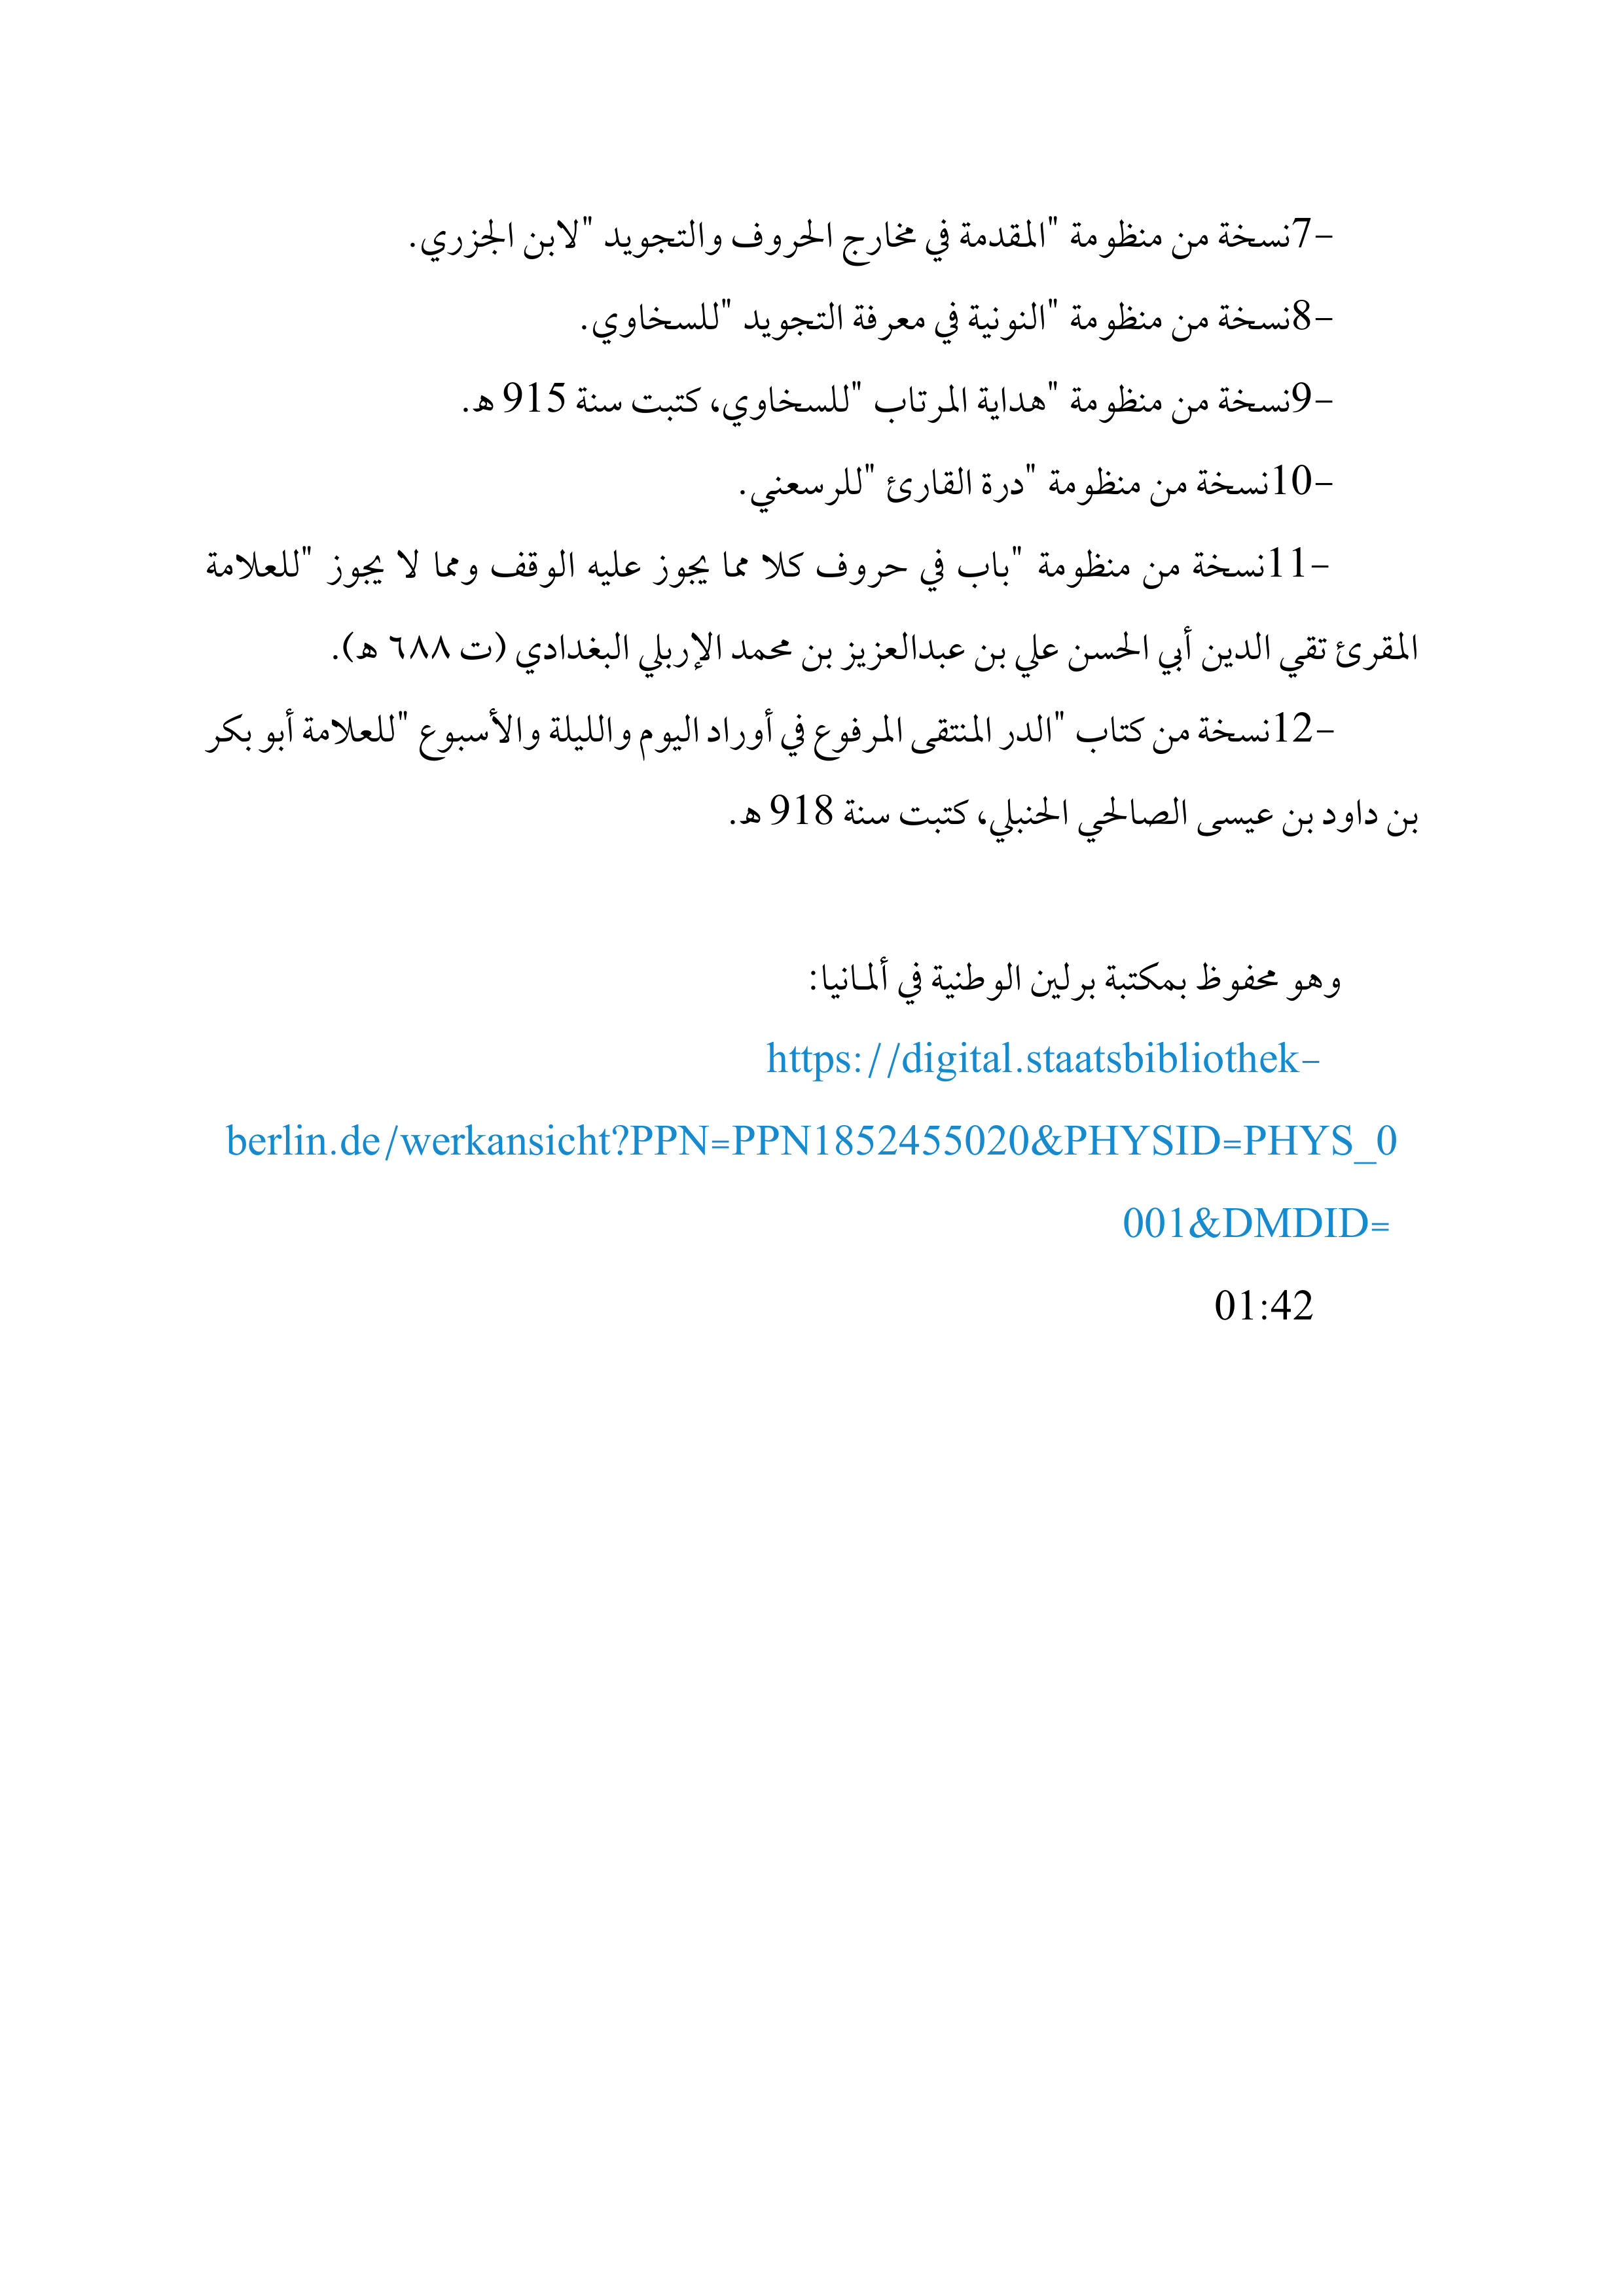 -7نسخة من منظومة "المقدمة في مخارج الحروف والتجويد "لابن الجزري.
-8نسخة من منظومة "النونية في معرفة التجويد "للسخاوي.
-9نسخة من منظومة "هداية المرتاب "للسخاوي، كتبت سنة 915 ه.
-10نسخة من منظومة "درة القارئ "للرسعني.
-11نسخة من منظومة "باب في حروف كلا مما يجوز عليه الوقف ومما لا يجوز "للعلامة
المقرئ تقي الدين أبي الحسن علي بن عبدالعزيز بن محمد الإربلي البغدادي (ت ٦٨٨ ه).
-12نسخة من كتاب "الدر المنتقى المرفوع في أوراد اليوم والليلة والأسبوع "للعلامة أبو بكر
بن داود بن عيسى الصالحي الحنبلي، كتبت سنة 918 ه.
وهو محفوظ بمكتبة برلين الوطنية في ألمانيا:
https://digital.staatsbibliothek-
berlin.de/werkansicht?PPN=PPN1852455020&PHYSID=PHYS_0
001&DMDID=
01:42